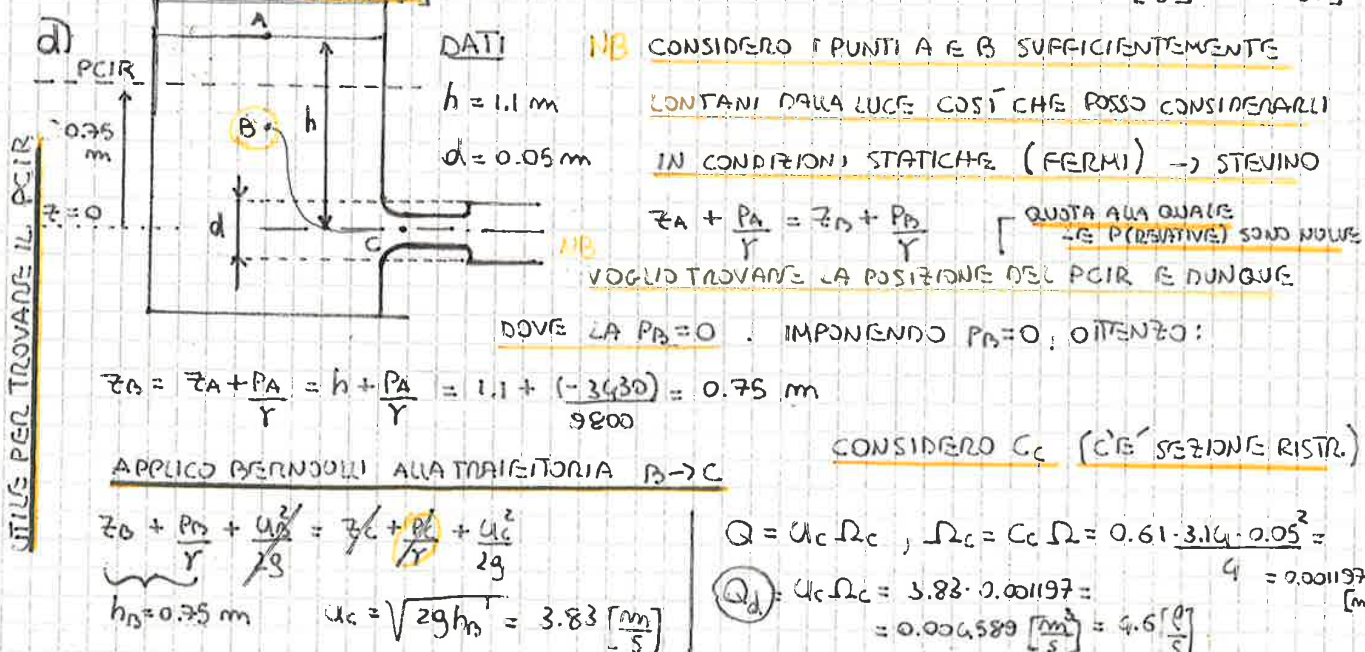 d)
A
PCIR
0.75
m
z = 0
B
h
d
C
UTILE PER TROVARE IL PCIR
DATI
h = 1.1 m
d = 0.05 m
NB CONSIDERO I PUNTI A E B SUFFICIENTEMENTE
LONTANI DALLA LUCE COSÌ CHE POSSO CONSIDERARLI
IN CONDIZIONI STATICHE (FERMI) -> STEVINO
zA + PA/γ = zB + PB/γ
QUOTA ALLA QUALE
LE P(RELATIVE) SONO NULLE
NB
VOGLIO TROVARE LA POSIZIONE DEL PCIR E DUNQUE
DOVE LA PB = 0 . IMPONENDO PB = 0, OTTENGO:
zB = zA + PA/γ = h + PA/γ = 1.1 + (-3430)/9800 = 0.75 m
CONSIDERO Cc (C'E' SEZIONE RISTR.)
APPLICO BERNOULLI ALLA TRAIETTORIA B -> C
zB + PB/γ + uB²/2g = zC + pC/γ + uC²/2g
hB = 0.75 m
uC = √2ghB = 3.83 [m/s]
Q = uC ΩC , ΩC = CC Ω = 0.61 · 3.14 · 0.05²/4 =
= 0.001197
[m
Qd = uC ΩC = 3.83 · 0.001197 =
= 0.004589 [m³/s] = 4.6 [ℓ/s]